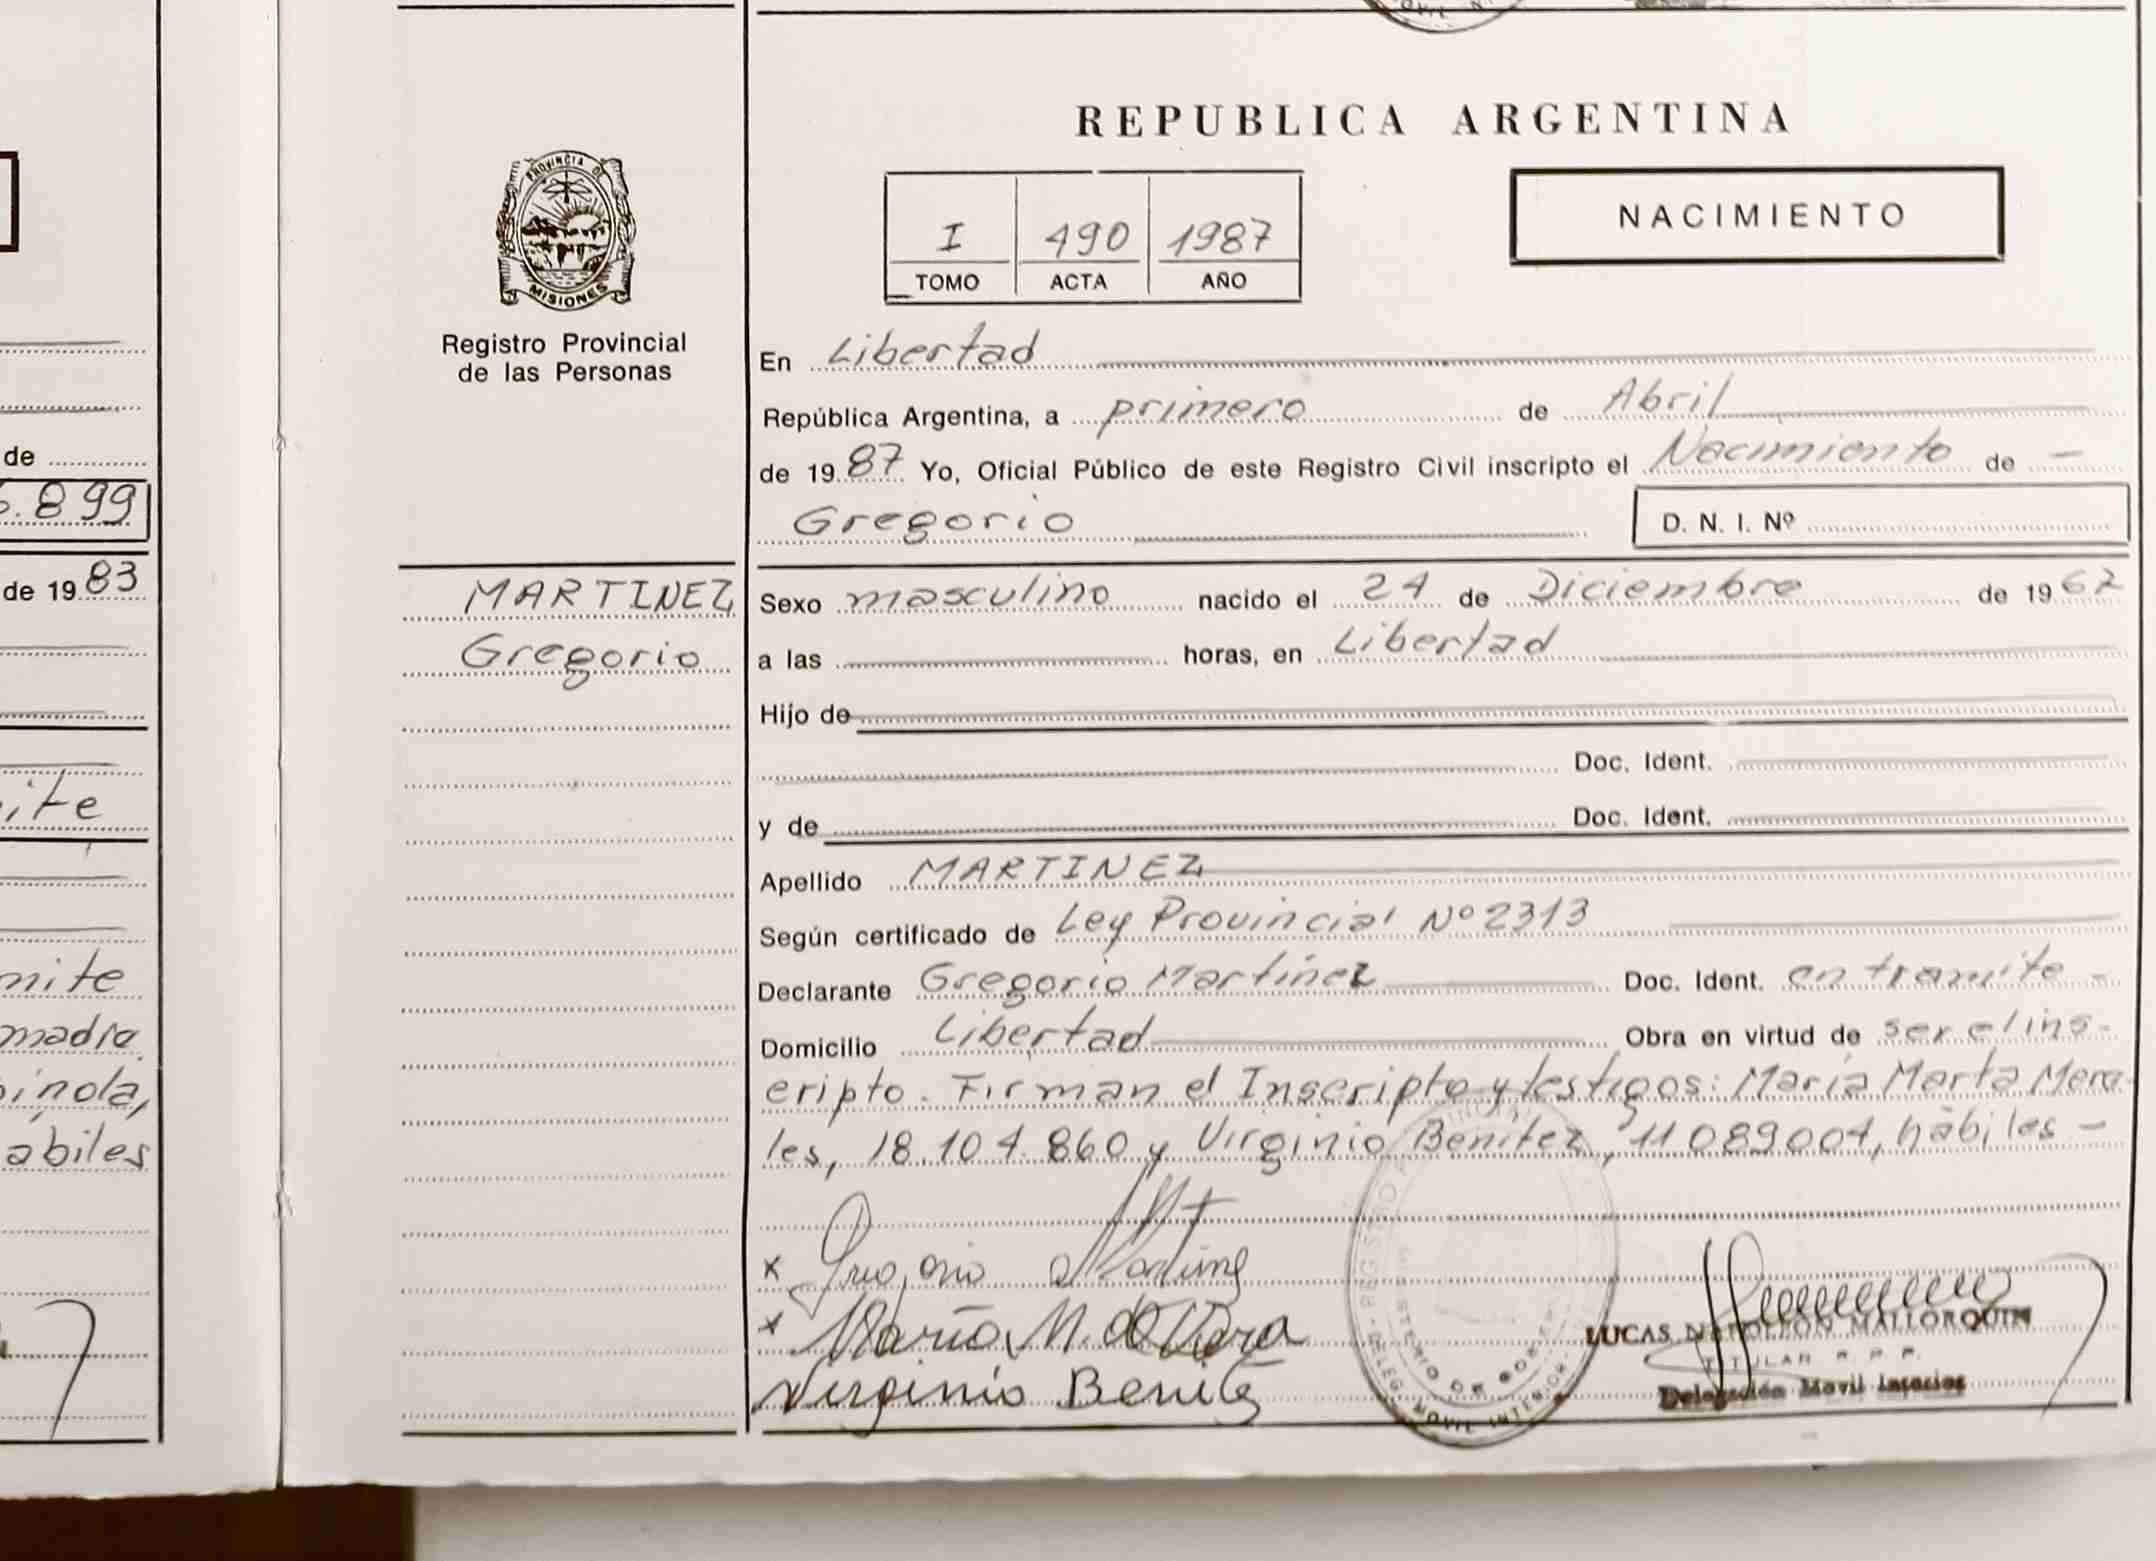 REPUBLICA ARGENTINA
PROVINCIA DE
MISIONES
Registro Provincial
de las Personas
I 490 1987
TOMO ACTA AÑO
NACIMIENTO
En Libertad
República Argentina, a primero de Abril
de 1987 Yo, Oficial Público de este Registro Civil inscripto el Nacimiento de -
Gregorio D. N. I. Nº
MARTINEZ
Gregorio
Sexo masculino nacido el 24 de Diciembre de 1967
a las horas, en Libertad
Hijo de
Doc. Ident.
y de Doc. Ident.
Apellido MARTINEZ
Según certificado de Ley Provincial Nº 2313
Declarante Gregorio Martinez Doc. Ident. en tramite -
Domicilio Libertad Obra en virtud de ser el ins-
cripto. Firman el Inscripto y testigos: María Marta Mora-
les, 18.104.860 y Virginio Benitez, 11.089.004, hábiles -
x Gregorio Martinez
x María M. de
Virginio Benitez
LUCAS NAPOLEON MALLORQUIN
TITULAR R. P. P.
Delegación Movil Interior
REGISTRO
DELEG. MOVIL INTERIOR
de
5.899
de 1983
ite
mite
madre
abiles